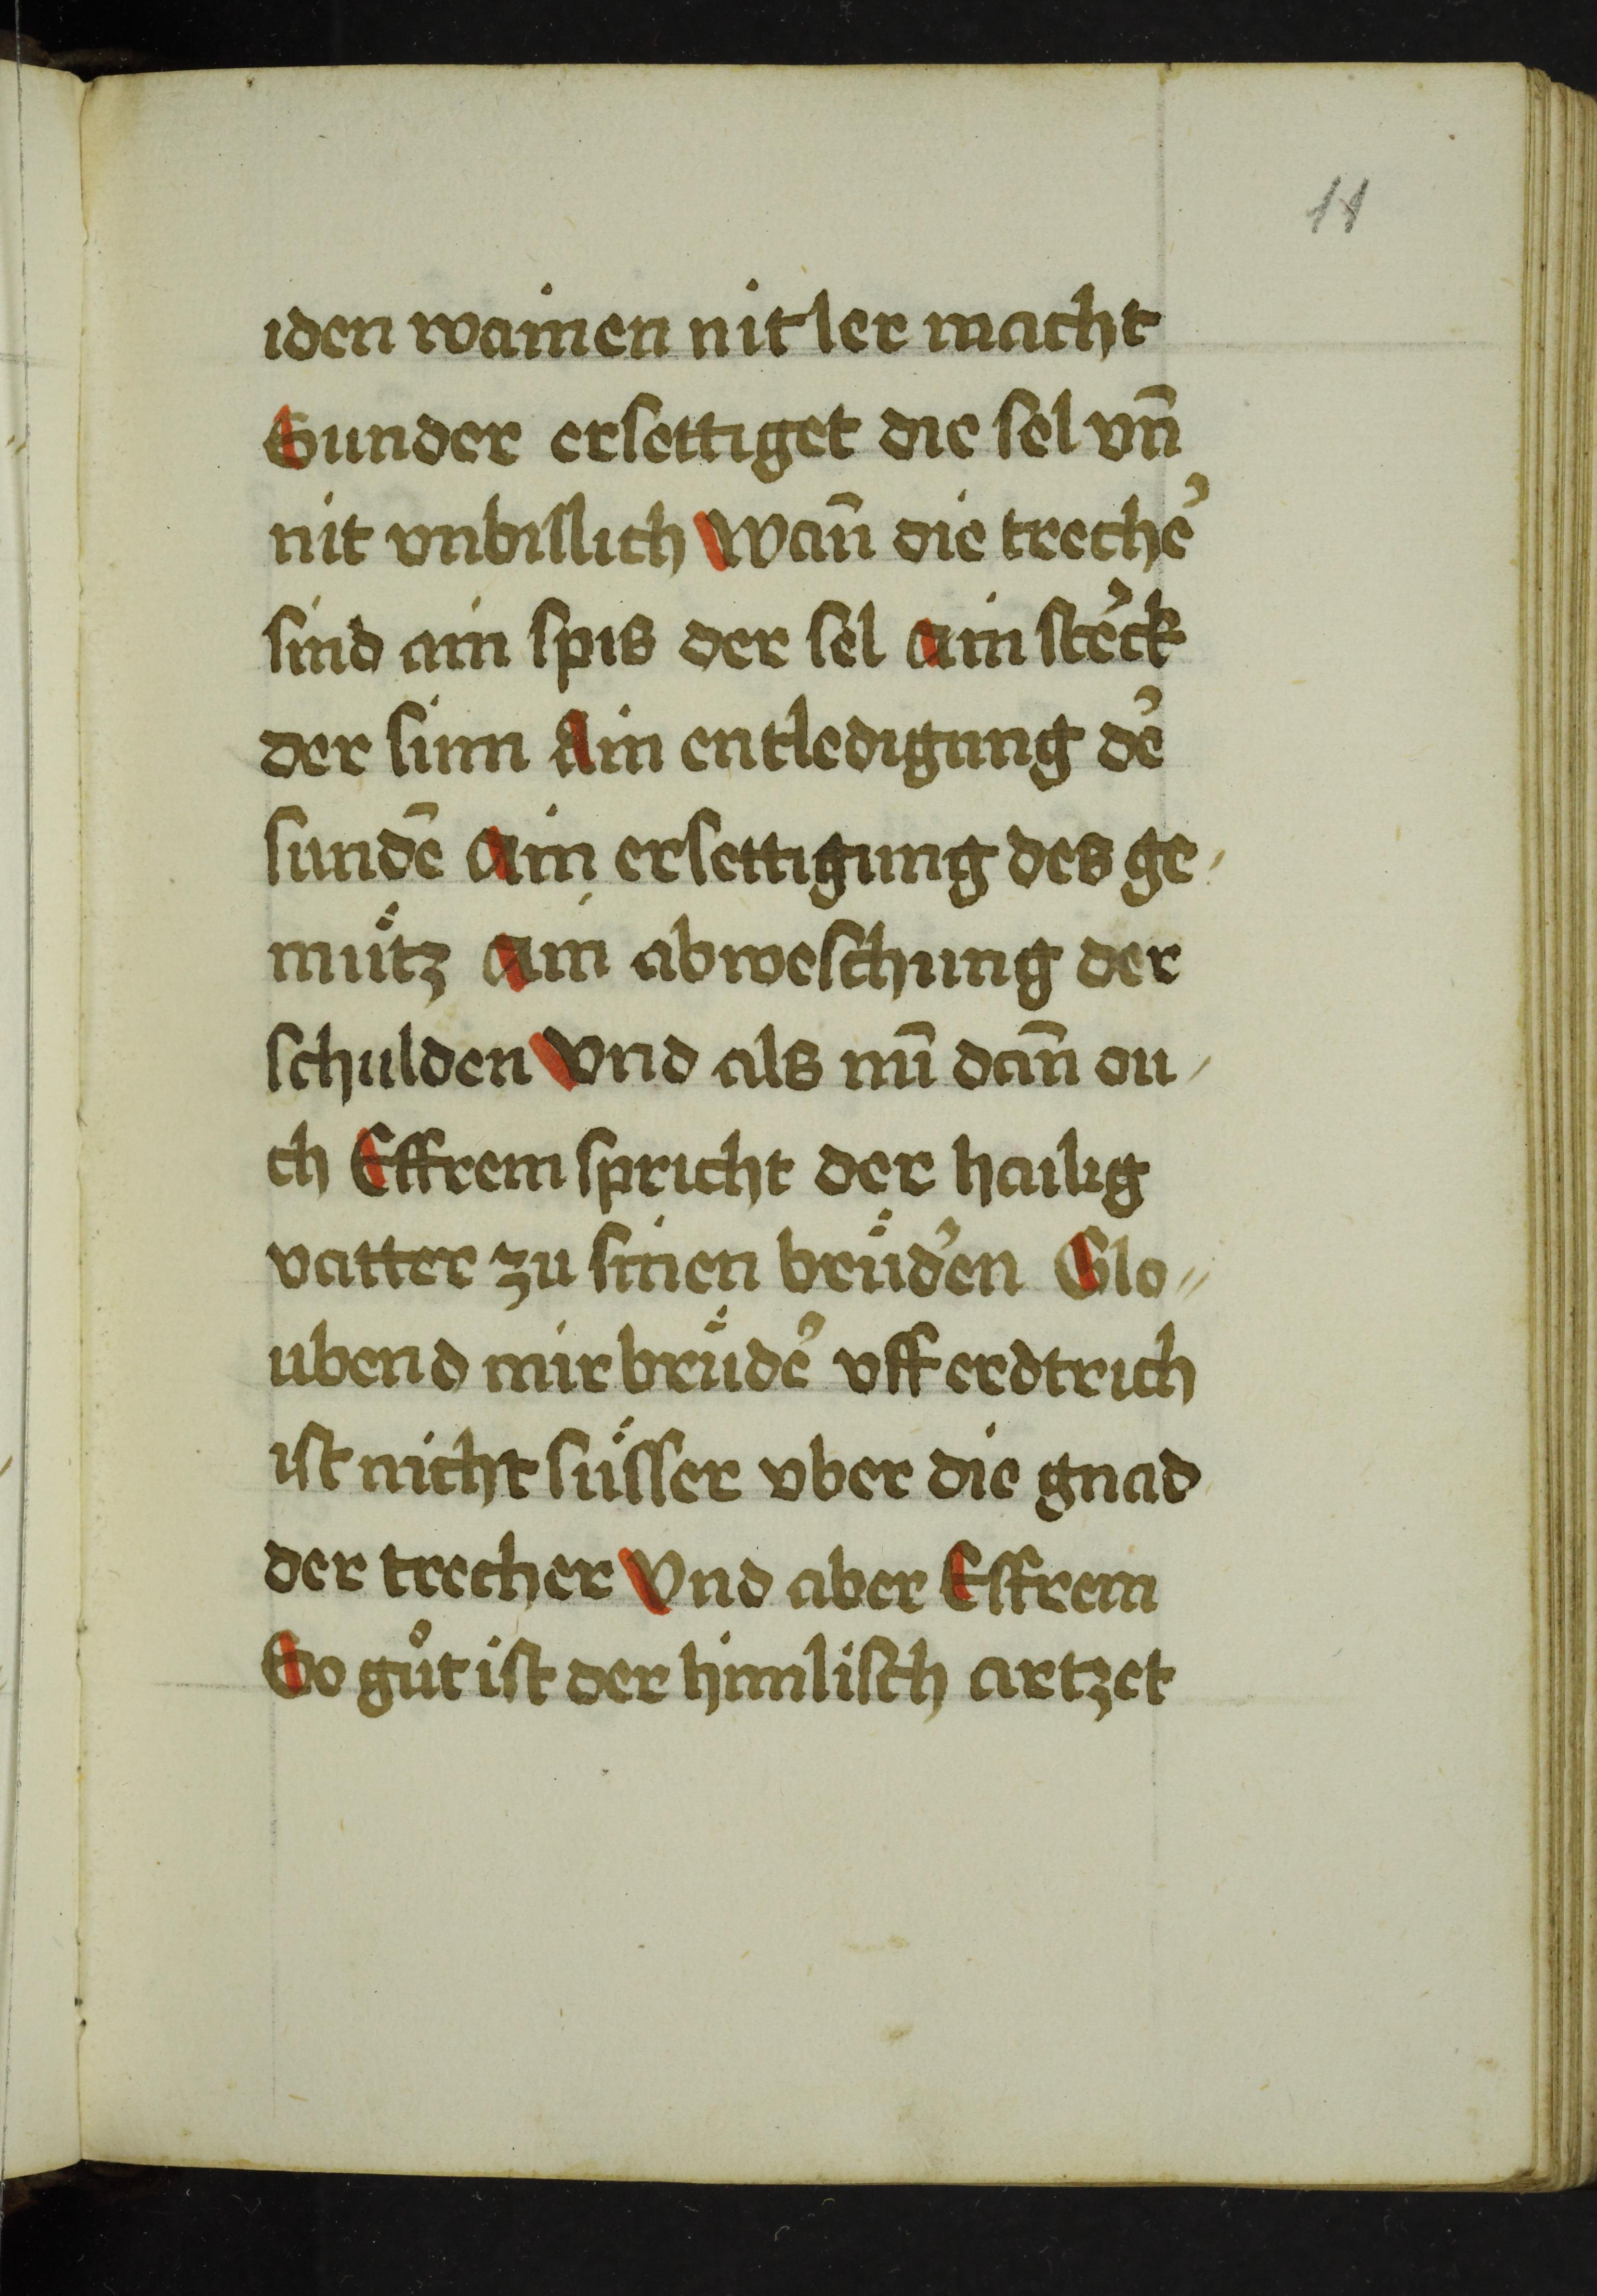 11
iden wainen nit ler macht
Sunder ersettiget die sel vn̄
nit vnbillich Wan̄ die treche᷑
sind ain spis der sel ain ste᷑ck
der sinn Ain entledigung de᷑
sundē Ain ersettigung des ge-
muͤtz Ain abweschung der
schulden Vnd als nū dan̄ ou-
ch Effrem spricht der hailig
vatter zu sinen bruͤde᷑n Glo-
ubend mir bruͤde᷑ vff erdtrich
ist nicht suͤsser vber die gnad
der trecher Vnd aber Effrem
So guͦt ist der himlisch artzet